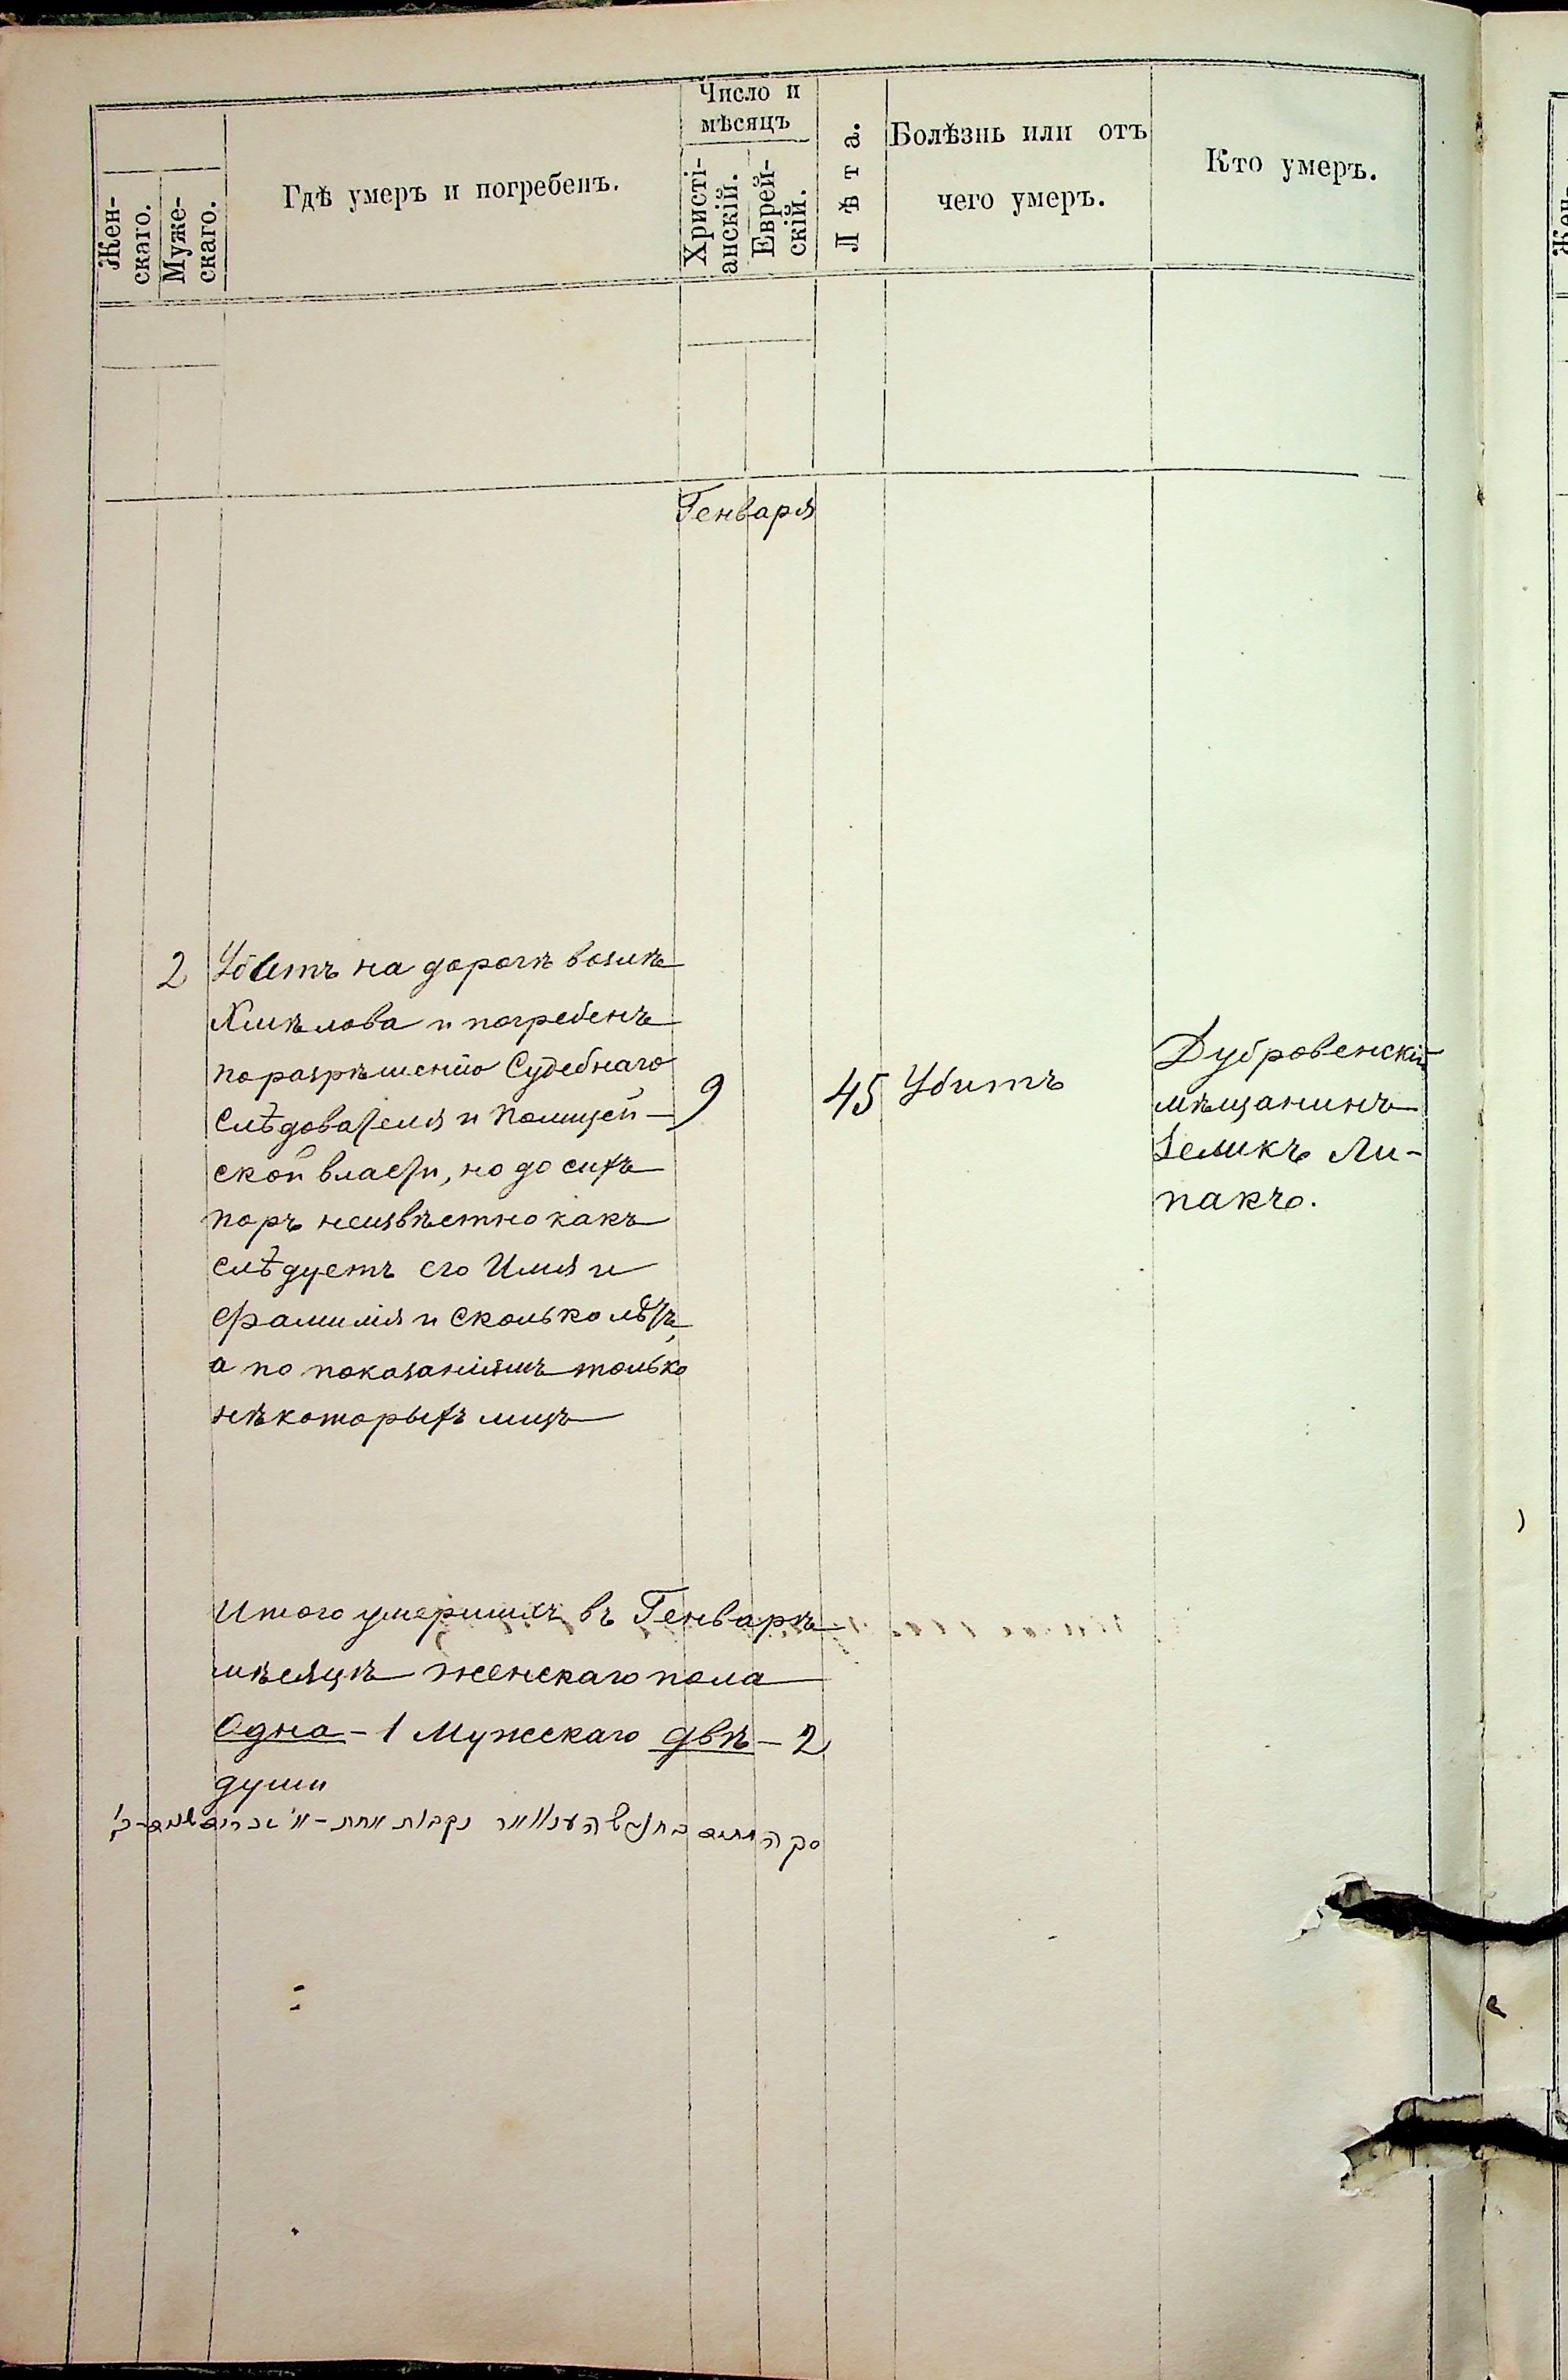 Число и
мѣсяцъ
Жен-
скаго.
Муже-
скаго.
Гдѣ умеръ и погребенъ.
Христі-
анскій.
Еврей-
скій.
Лѣта.
Болѣзнь или отъ
чего умеръ.
Кто умеръ.
Генваря
2 Убитъ на дорогѣ возлѣ
и погребенъ
по разрѣшенію Судебнаго
Слѣдователя и Полицей-
ской власти, но до сихъ
поръ неизвѣстно какъ
слѣдуетъ его Имя и
фамилія и сколько лѣтъ,
а по показаніямъ только
нѣкоторыхъ лицъ
9
45 Убитъ
Дубровенскій
мѣщанинъ
Зеликъ Ли-
пакъ.
Итого умершихъ въ Генварѣ
мѣсяцѣ женскаго пола
Одна - 1 Мужскаго двѣ - 2
души